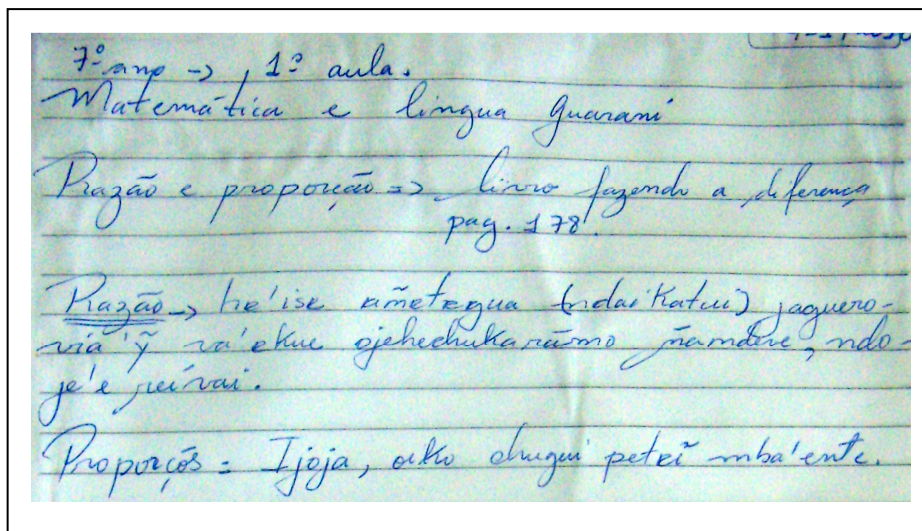 7º ano -> , 1ª aula.
Matemática e lingua guarani
Razão e proporção => livro fazendo a diferença
pag. 178.
Razão -> he'ise añetegua (ndaikatui) jaguero-
via'ỹ va'ekue ojehechukarãmo ñandeve, ndo-
je'e reívai.
Proporções = Ijoja, oiko chugui peteĩ mba'ente.